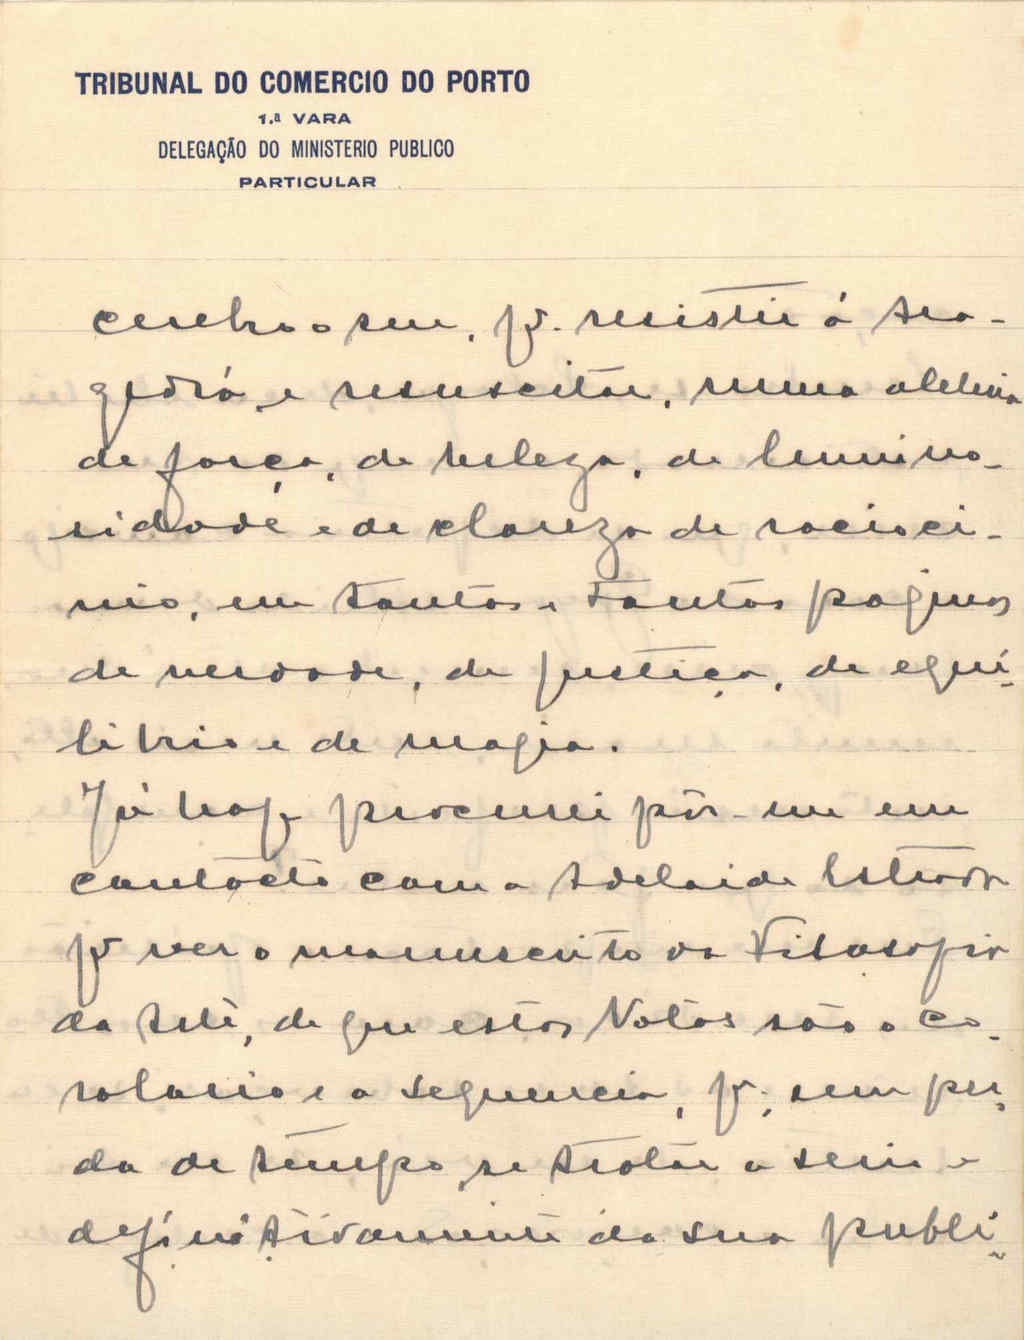 TRIBUNAL DO COMERCIO DO PORTO
1.ª VARA
DELEGAÇÃO DO MINISTERIO PUBLICO
PARTICULAR
cerebro o seu, pª. resistir á tra-
gedia, e resuscitar, numa aleluia
de força, de beleza, de lumino-
sidade e de clareza de racioci-
nio, em tantas e tantas paginas
de verdade, de justiça, de equi-
librio e de magia.
Já hoje procurei pôr-me em
contacto com a Adelaide Estrada
pª ver o manuscrito da Filosofia
da Arte, de que estas Notas são o co-
rolario e a sequencia, pª, sem per-
da de tempo, se tratar a serio e
definitivamente da sua publi-